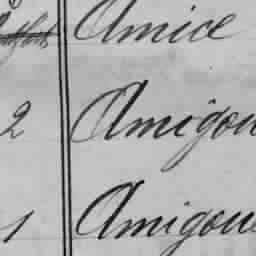 Amice
2 Amigou
1 Amigou